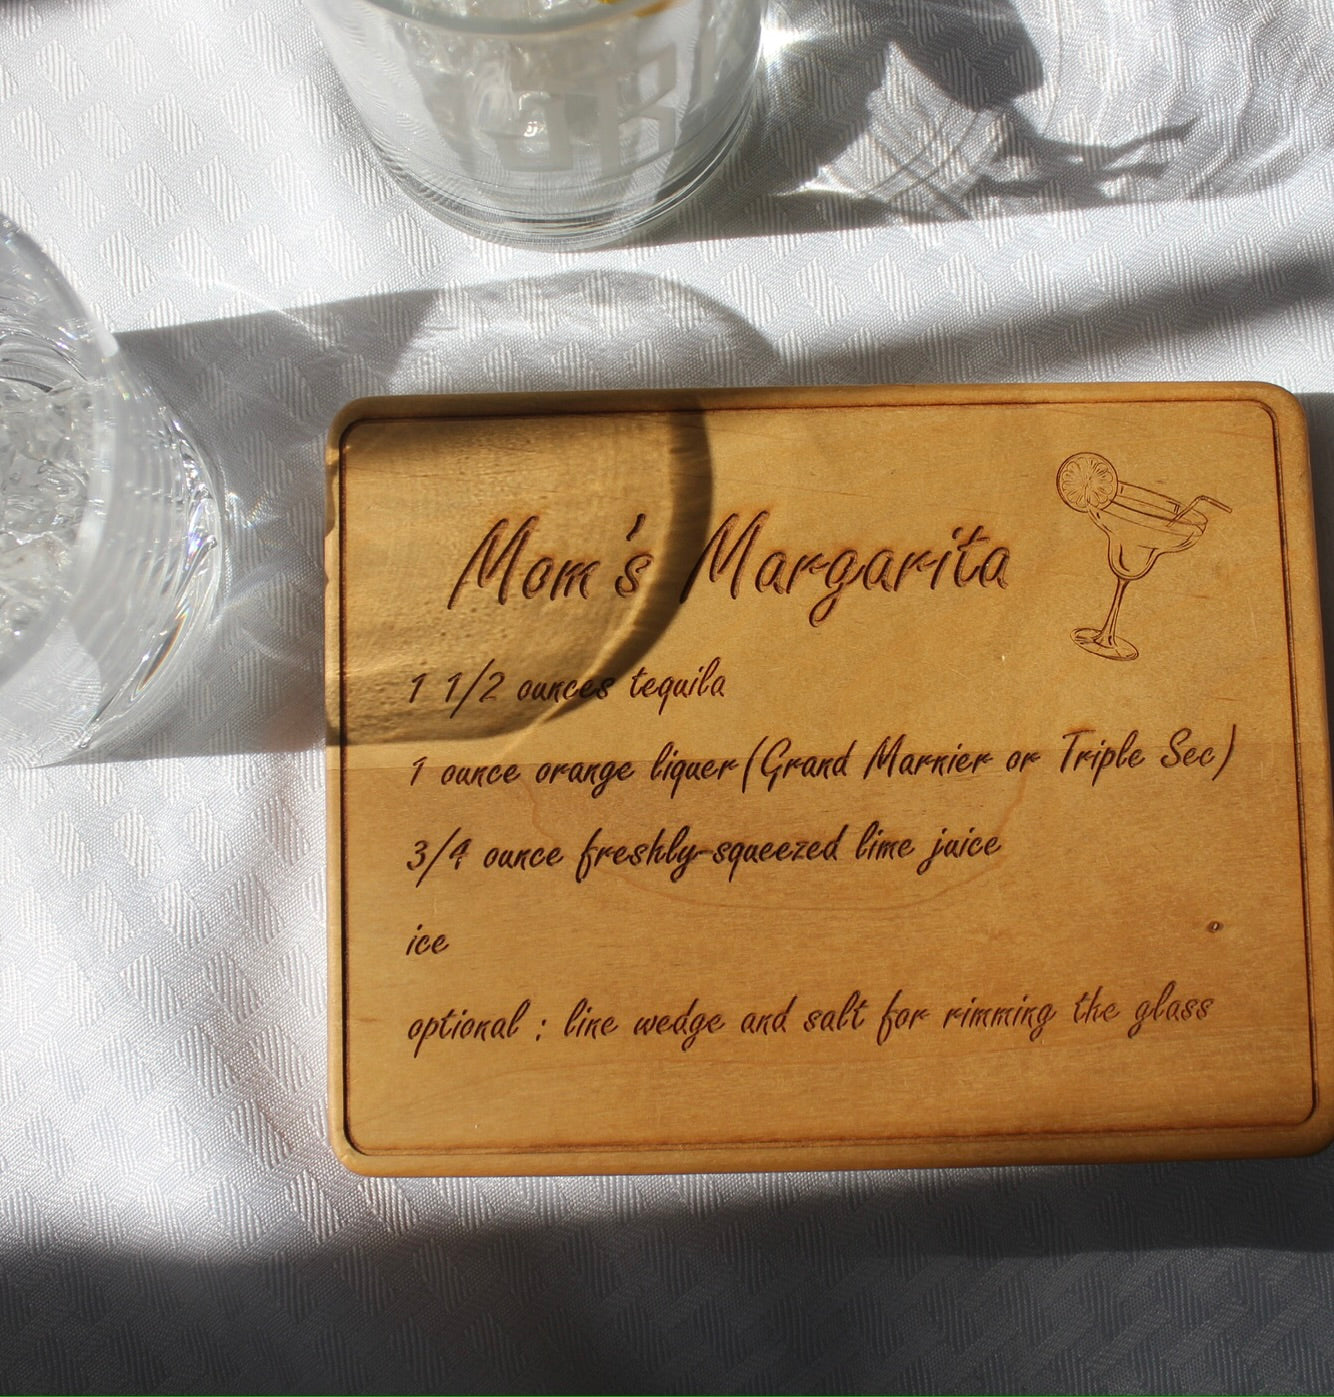 Mom's Margarita
1 1/2 ounces tequila
1 ounce orange liquer(Grand Marnier or Triple Sec)
3/4 ounce freshly-squeezed lime juice
ice
optional : line wedge and salt for rimming the glass